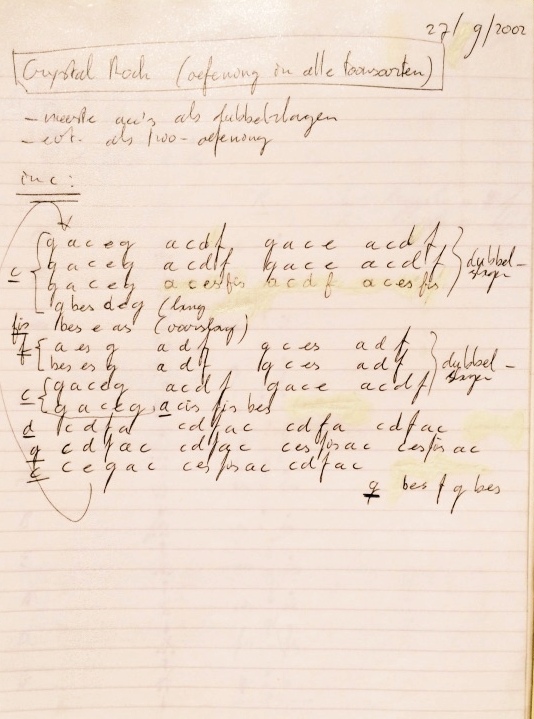 27/9/2002
Crystal Rock (oefening in alle toonsoorten)
- meeste acc's als dubbelslagen
- evt. als two-oefening
in c:
g a c e g a c d f g a c e a c d f
c g a c e g a c d f g a c e a c d f dubbel-
g a c e g a c es fis a c d f a c es fis slagen
g bes d e g (lang
fis bes e as (voorslag)
f a es g a d f g c es a d f
bes es g a d f g c es a d f dubbel-
c g a c d g a c d f g a c e a c d f slagen
g a c e g a cis fis bes
d c d f a c d f a c c d f a c d f a c
g c d f a c c d f a c c es fis a c c es fis a c
c c e g a c c es fis a c c d f a c
g bes f g bes